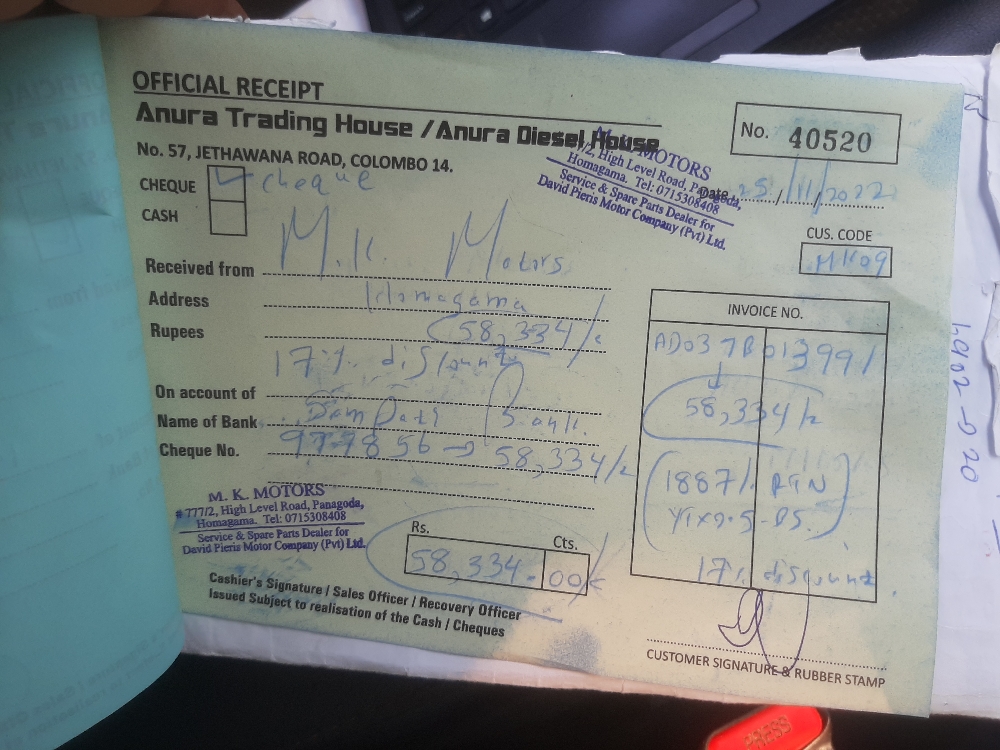 OFFICIAL RECEIPT
Anura Trading House / Anura Diesel House
No. 57, JETHAWANA ROAD, COLOMBO 14.
No. 40520
MOTORS
/2, High Level Road, Panagoda,
Homagama. Tel: 0715308408
Service & Spare Parts Dealer for
David Pieris Motor Company (Pvt) Ltd.
Date 25/11/2022
CHEQUE cheque
CASH
CUS. CODE
MK09
Received from M.K. Motors
Address Homagama
Rupees (58,334/=
17% discount
On account of
Name of Bank Sampath Bank
Cheque No. 977856 → 58,334/=
INVOICE NO.
AD037B013991
58,334/=
1887/= RTN
17% discount
M. K. MOTORS
# 777/2, High Level Road, Panagoda,
Homagama. Tel: 0715308408
Service & Spare Parts Dealer for
David Pieris Motor Company (Pvt) Ltd.
Rs. Cts.
58,334.00
Cashier's Signature / Sales Officer / Recovery Officer
Issued Subject to realisation of the Cash / Cheques
CUSTOMER SIGNATURE & RUBBER STAMP